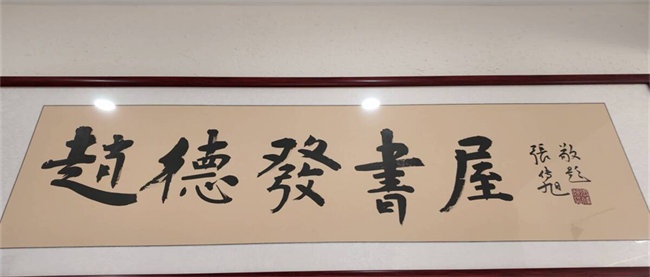 趙德發書屋
敬題
張傳旭